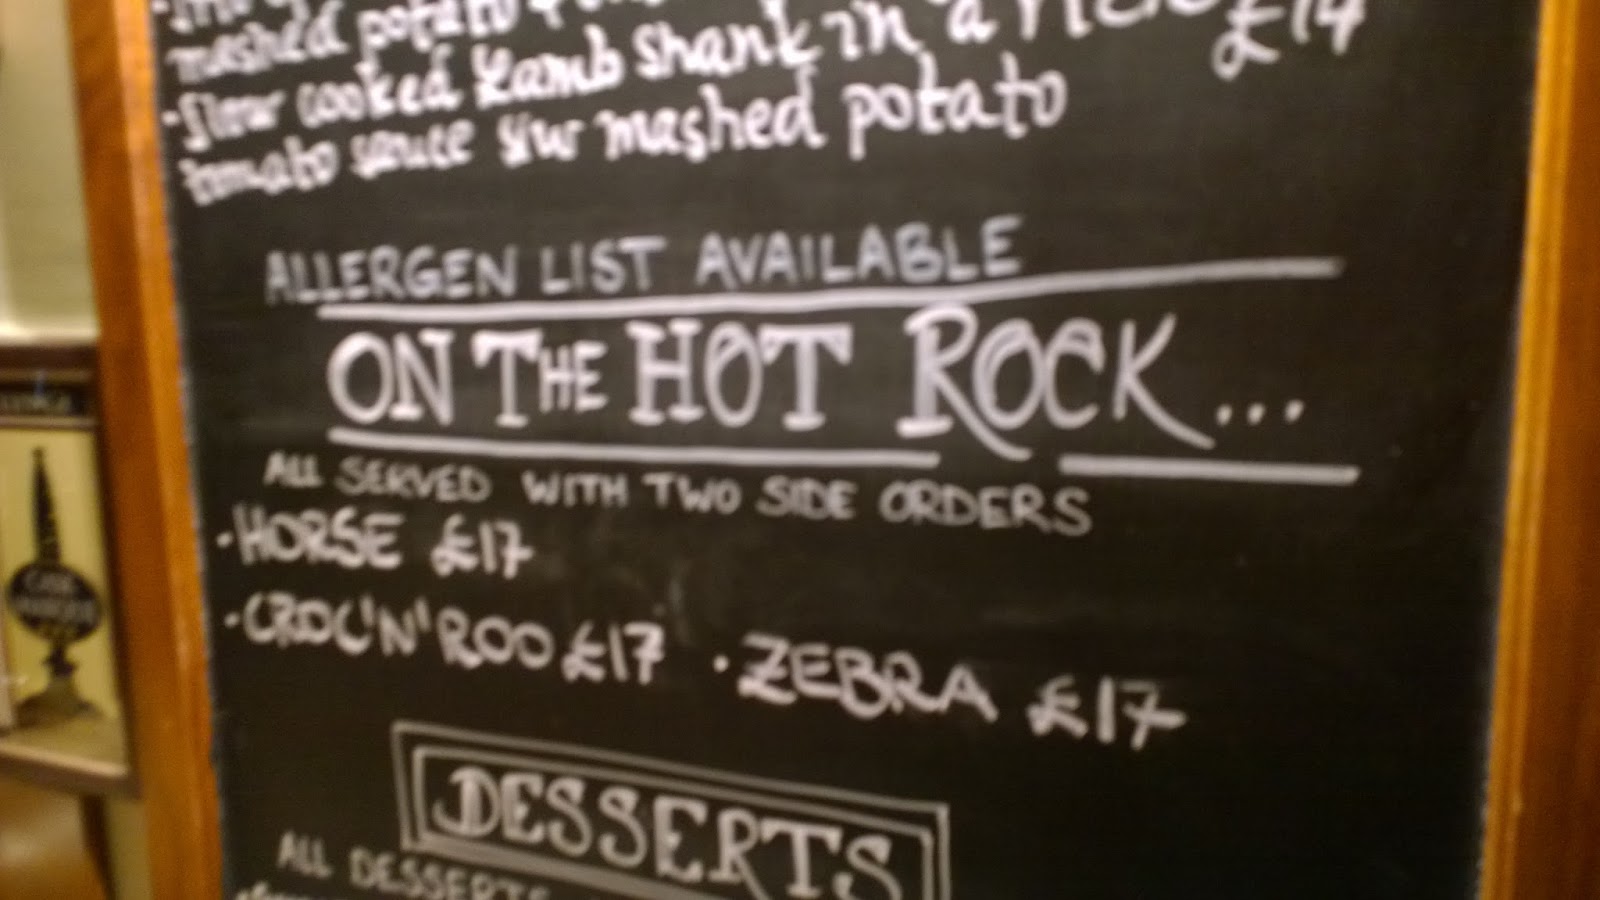 mashed potato
£14
·Slow cooked Lamb shank in a
tomato sauce mashed potato
ALLERGEN LIST AVAILABLE
ON THE HOT ROCK...
ALL SERVED WITH TWO SIDE ORDERS
·HORSE £17
·CROC'N'ROO £17 ·ZEBRA £17
DESSERTS
ALL DESSERTS